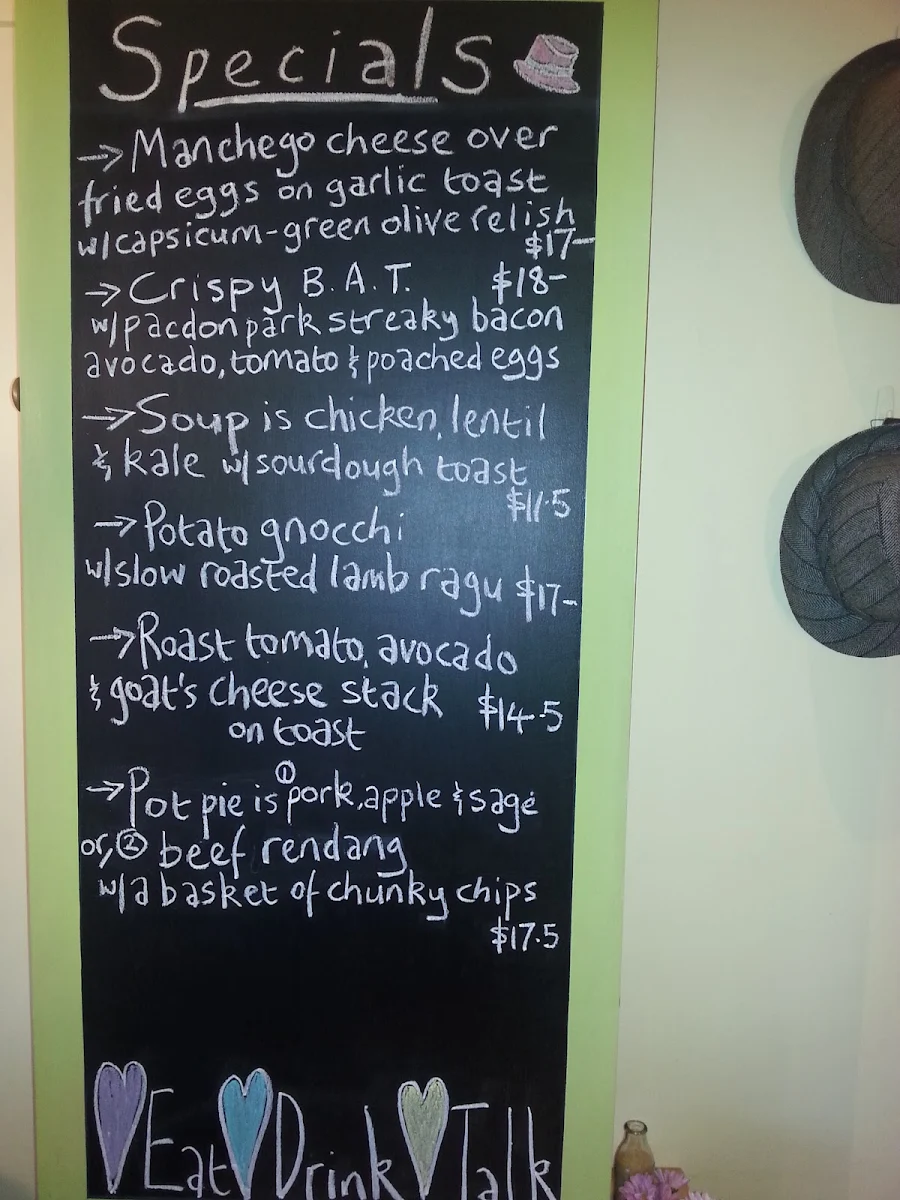 Specials
→Manchego cheese over
fried eggs on garlic toast
w/capsicum-green olive relish
$17-
→Crispy B.A.T. $18-
w/pacdon park streaky bacon
avocado, tomato & poached eggs
→Soup is chicken, lentil
& kale w/sourdough toast
$11.5
→Potato gnocchi
w/slow roasted lamb ragu $17-
→Roast tomato, avocado
& goat's cheese stack $14.5
on toast
→Pot pie is ① pork, apple & sage
or, ② beef rendang
w/a basket of chunky chips
$17.5
Eat Drink Talk